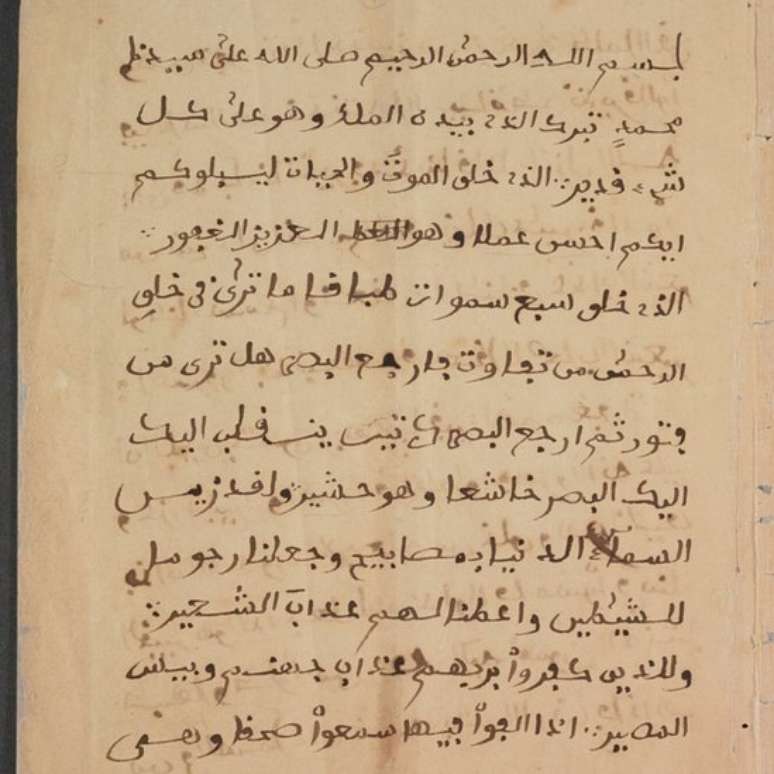 بسم الله الرحمن الرحيم صلى الله على سيدنا
محمدٍ تبرك الذى بيده الملك وهو على كل
شىء قدير الذى خلق الموت والحيات ليبلوكم
ايكم احسن عملا وهو العزيز الغفور
الذى خلق سبع سموات طباقا ما ترى فى خلق
الرحمن من تفاوت فارجع البصر هل ترى من
فتور ثم ارجع البصر ينقلب اليك
اليك البصر خاشعا وهو حشير ولقد زيس
السماء الدنيا بمصابيح وجعلنا رجوما
للشيطين واعطنا لهم عذاب الشعير
وللذين كفروا بربهم عذاب جهنم وبيس
المصير اذا القوا فيها سمعوا وهى